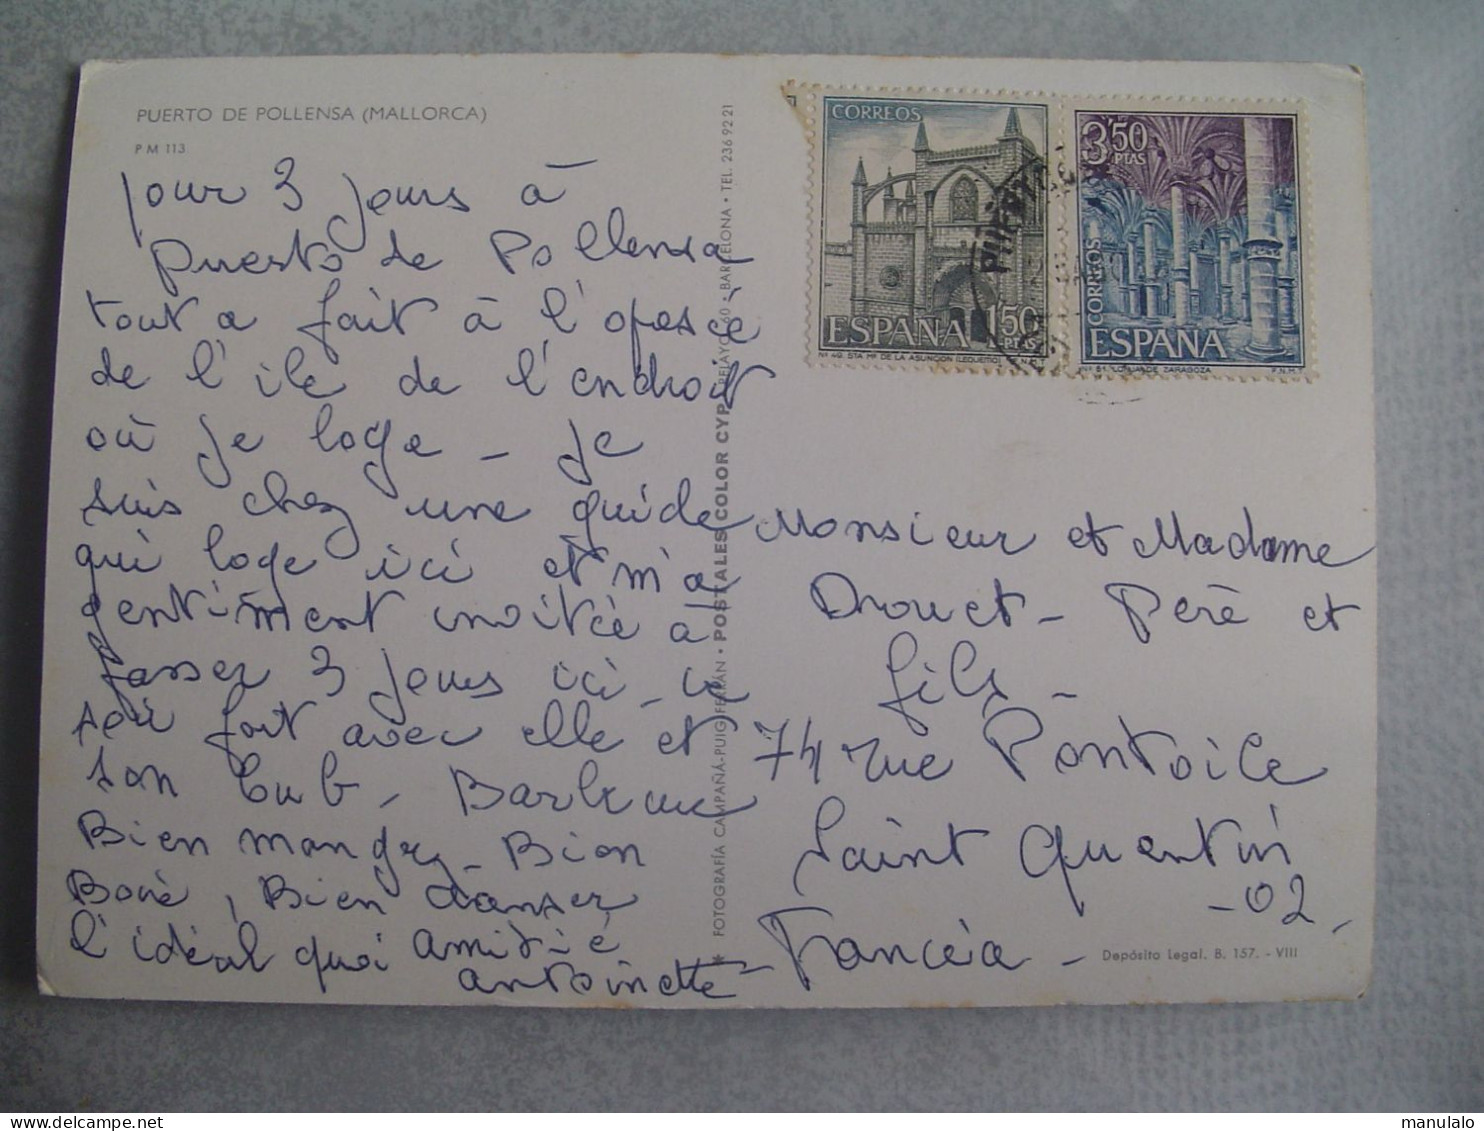 PUERTO DE POLLENSA (MALLORCA)
PM 113
pour 3 jours à
Puerto de Pollensa
tout a fait à l'oposé
de l'ile de l'endroit
où je loge - je
suis chez une guide
qui loge ici et m'a
gentiment invitée à
passer 3 jours ici
fort avec elle et
son
Bien manger - Bien
Boire, Bien danser
l'idéal quoi amitié
antoinette
* FOTOGRAFÍA CAMPAÑA-PUIG FERRÁN • POSTALES COLOR CYP PELAYO, 60 • BARCELONA • TEL. 236 92 21
CORREOS
ESPAÑA 1'50
PTAS
Nº 49. STA Mª DE LA ASUNCION (LEQUEITIO) F.N.M.T.
3'50
PTAS
CORREOS
ESPAÑA
Nº 51. LONJA DE ZARAGOZA F.N.M.T.
PUERTO
Monsieur et Madame
Drouet - Père et
fils -
74 rue Pontoile
Saint Quentin
- 02 -
Francia -
Depósito Legal. B. 157. - VIII
manulalo